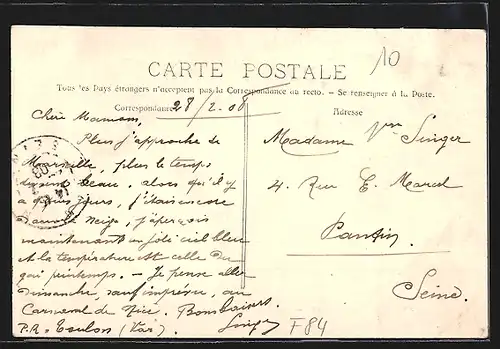 CARTE POSTALE
10
Tous les Pays étrangers n'acceptent pas la Correspondance au recto. – Se renseigner à la Poste.
Correspondance
28/2.08
Chère Maman,
Plus j'approche de
Marseille, plus le temps
devient beau, alors qu'il y
a jours, j'étais encore
dans la neige, j'aperçois
maintenant un joli ciel bleu
et la température est celle du
gai printemps. – Je pense aller
dimanche, sauf imprévu, au
Carnaval de Nice. Bons baisers
Singer
P.R. Toulon (Var)
Adresse
Madame Vve Singer
4. Rue E. Marcel
Pantin
Seine.
F84